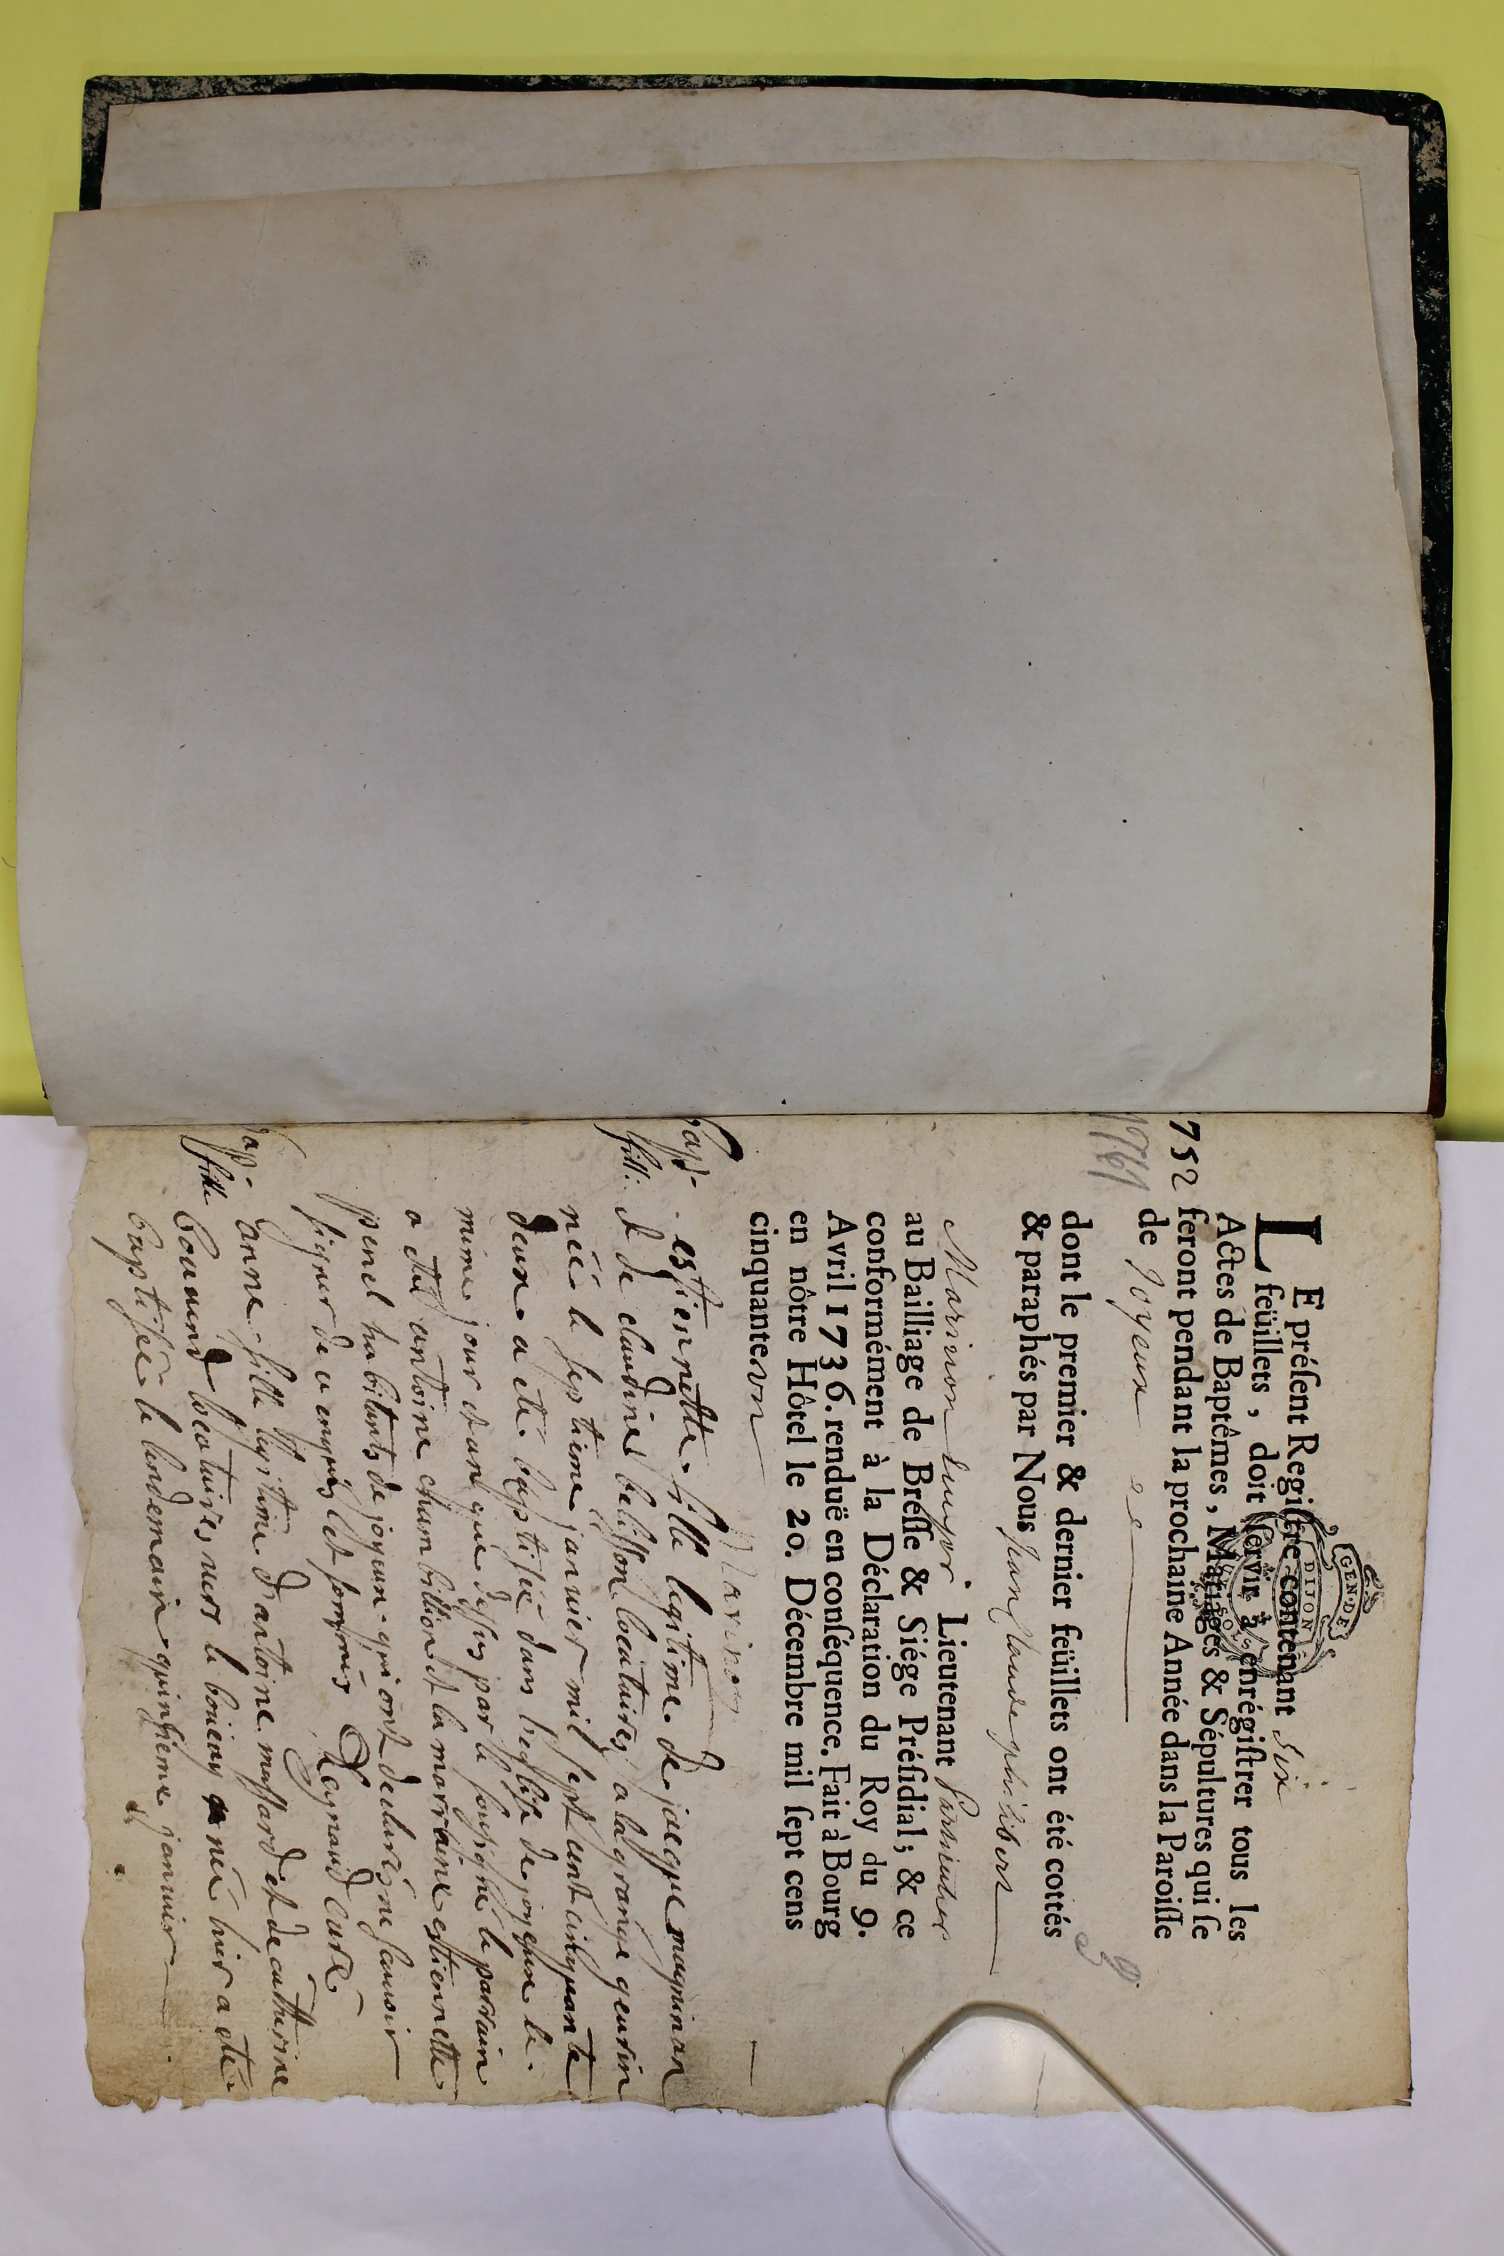 GEN·DE
DIJON
LE préſent Regiſtre contenant six
feüillets, doit ſervir à enrégiſtrer tous les
Actes de Baptêmes, Mariages & Sépultures qui ſe
752 feront pendant la prochaine Année dans la Paroiſſe
de Joyeux
dont le premier & dernier feüillets ont été cottés
& paraphés par Nous Jean Claude philibert
Marinon Lieutenant particulier
au Bailliage de Breſſe & Siége Préſidial; & ce
conformément à la Déclaration du Roy du 9.
Avril 1736. renduë en conſéquence. Fait à Bourg
en nôtre Hôtel le 20. Décembre mil ſept cens
cinquante vn
Marinon
bapt. estiennette fille legitime de jacque magninan
fille et de claudine belisson locataires a la grange guerin
née le septieme janvier mil sept cent cinquante
deux a eté baptisée dans l'eglise de joyeux le
meme jour et an que dessus par le soussigné le parrain
a eté antoine chambillion et la marraine estiennette
penel habitants de joyeux qui ont declaré ne scavoir
signer de ce enquis et sommés Reynaud curé
bapt. anne fille legitime d'antoine massard et de catherine
fille locataires vers le née hier a eté
baptisée le lendemain quinzieme janvier